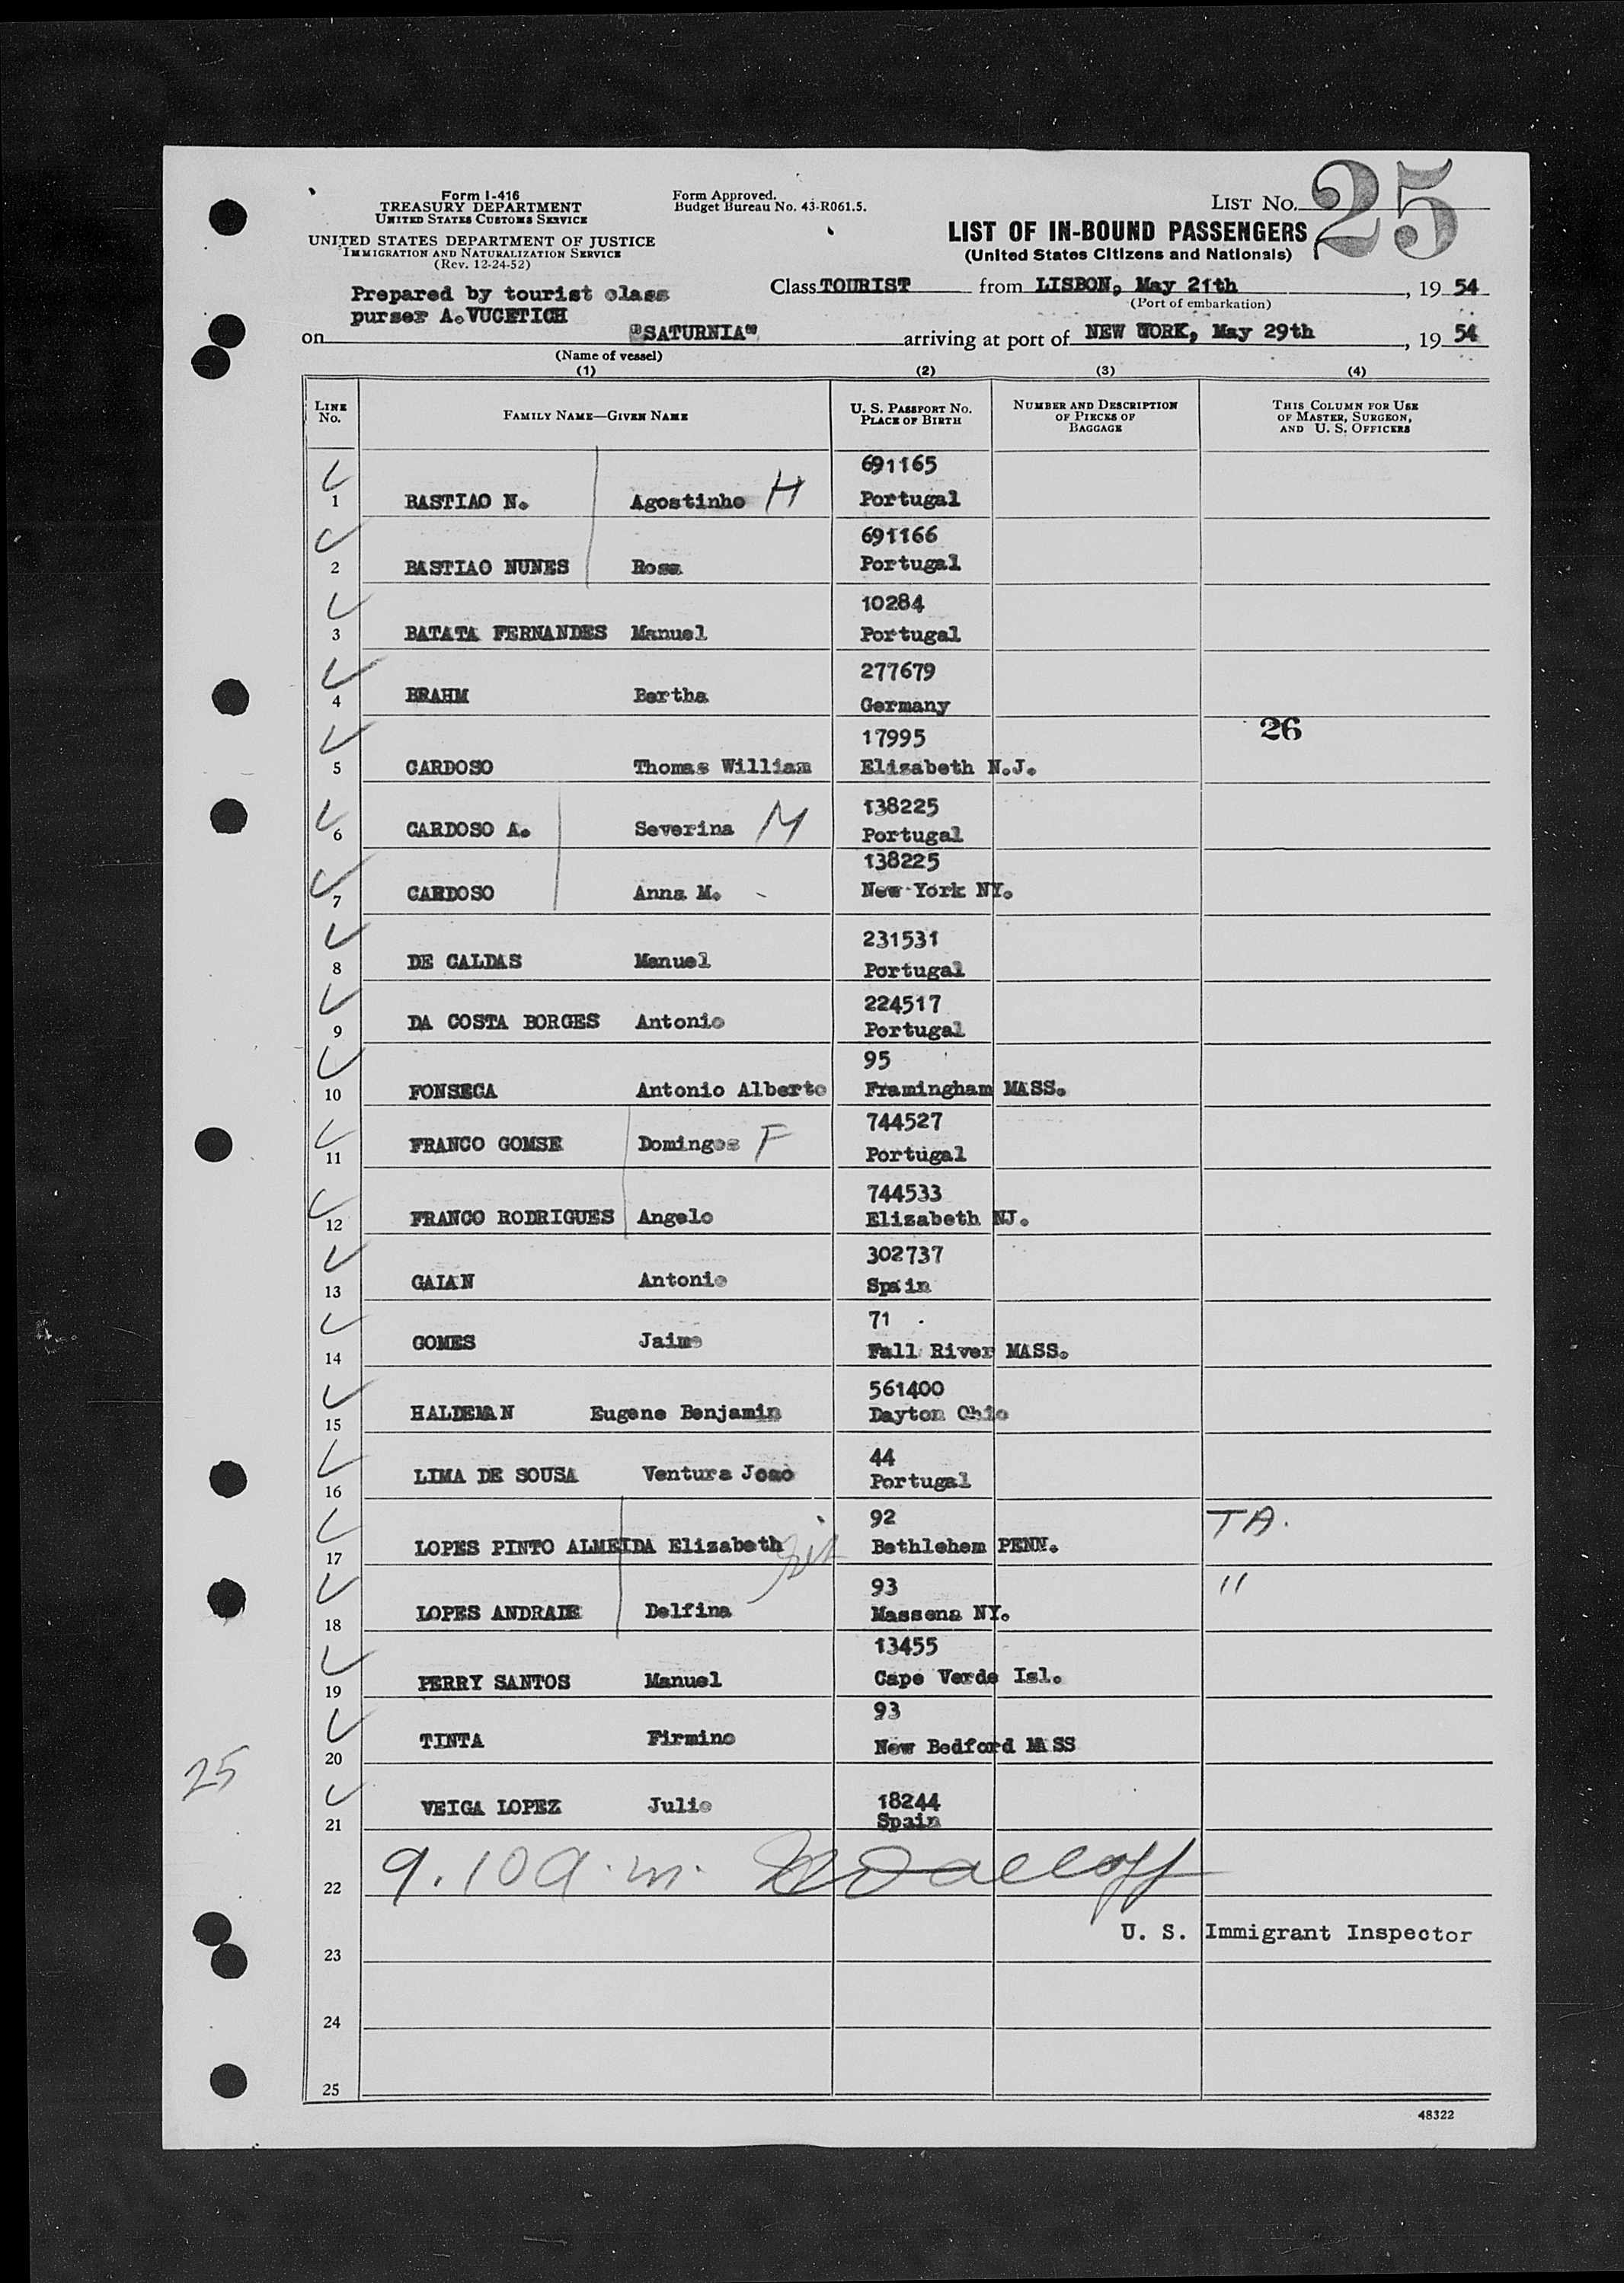 Form I-416
TREASURY DEPARTMENT
UNITED STATES CUSTOMS SERVICE
UNITED STATES DEPARTMENT OF JUSTICE
IMMIGRATION AND NATURALIZATION SERVICE
(Rev. 12-24-52)
Form Approved.
Budget Bureau No. 43-R061.5.
LIST NO. 25
LIST OF IN-BOUND PASSENGERS
(United States Citizens and Nationals)
Prepared by tourist class
purser A. VUCETICH
Class TOURIST from LISBON, May 21th, 19 54
(Port of embarkation)
on "SATURNIA" arriving at port of NEW YORK, May 29th, 19 54
(Name of vessel)
(1) (2) (3) (4)
LINE No.
FAMILY NAME—GIVEN NAME
U. S. PASSPORT NO.
PLACE OF BIRTH
NUMBER AND DESCRIPTION
OF PIECES OF
BAGGAGE
THIS COLUMN FOR USE
OF MASTER, SURGEON,
AND U. S. OFFICERS
691165
1 BASTIAO N. Agostinho H Portugal
691166
2 BASTIAO NUNES Rosa Portugal
10284
3 BATATA FERNANDES Manuel Portugal
277679
4 BRAHM Bertha Germany
26
17995
5 CARDOSO Thomas William Elizabeth N.J.
138225
6 CARDOSO A. Severina M Portugal
138225
7 CARDOSO Anna M. New-York NY.
231531
8 DE CALDAS Manuel Portugal
224517
9 DA COSTA BORGES Antonio Portugal
95
10 FONSECA Antonio Alberto Framingham MASS.
744527
11 FRANCO GOMSE Domingos F Portugal
744533
12 FRANCO RODRIGUES Angelo Elizabeth NJ.
302737
13 GAIAN Antonio Spain
71
14 GOMES Jaime Fall River MASS.
561400
15 HALDEMAN Eugene Benjamin Dayton Ohio
44
16 LIMA DE SOUSA Ventura Joao Portugal
92 TA.
17 LOPES PINTO ALMEIDA Elizabeth Bethlehem PENN.
93 "
18 LOPES ANDRADE Delfina Massena NY.
13455
19 PERRY SANTOS Manuel Cape Verde Isl.
93
20 TINTA Firmino New Bedford MASS
25
18244
21 VEIGA LOPEZ Julio Spain
22 9.10 a.m.
U. S. Immigrant Inspector
23
24
25
48322